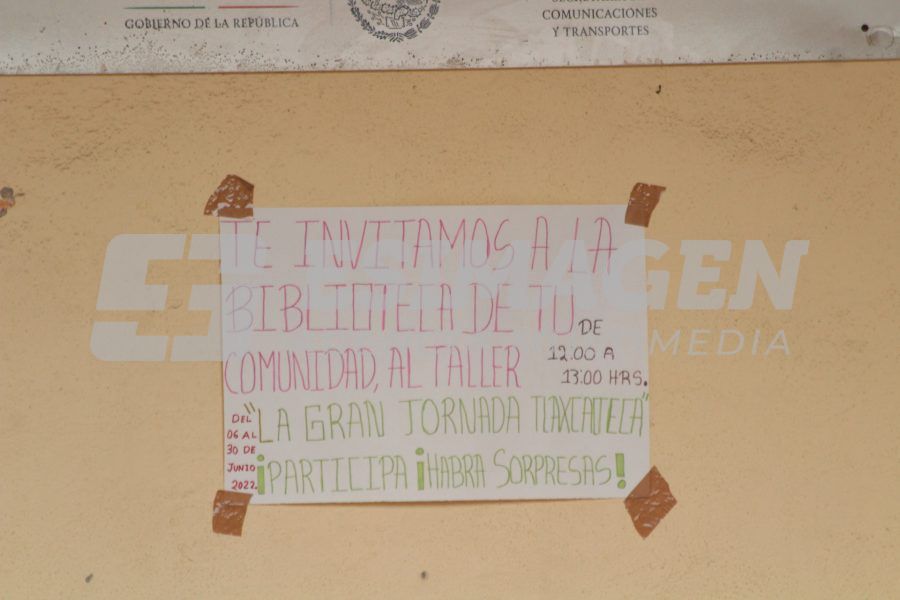 GOBIERNO DE LA REPÚBLICA
COMUNICACIONES
Y TRANSPORTES
TE INVITAMOS A LA
BIBLIOTECA DE TU
DE
COMUNIDAD, AL TALLER
12:00 A
13:00 HRS.
DEL
06 AL
30 DE
JUNIO
2022.
"LA GRAN JORNADA TLAXCALTECA"
¡PARTICIPA ¡HABRA SORPRESAS!
MEDIA